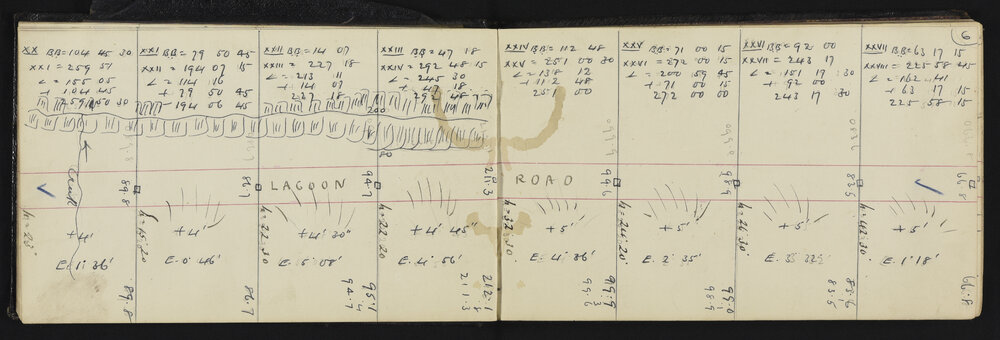 XX BB=104 45 30
XXI = 259 51
∠ = 155 05
+ 104 45
259 50 30
XXI BB=79 50 45
XXII = 194 07 15
∠ = 114 16
+ 79 50 45
194 06 45
XXII BB=14 07
XXIII = 227 18
∠ = 213 11
+ 14 07
227 18
XXIII BB=47 18
XXIV = 292 48 15
∠ = 245 30
+ 47 18
292 48
XXIV BB=112 48
XXV = 251 00 30
∠ = 138 12
+ 112 48
251 00
XXV BB=71 00 15
XXVI = 272 00 15
∠ = 200 59 45
+ 71 00 15
272 00 00
XXVI BB=92 00
XXVII = 243 17
∠ = 151 17 30
+ 92 00
243 17 30
XXVII BB=63 17 15
XXVIII = 225 58 45
∠ = 162 41
+ 63 17 15
225 58 15
200
80
Creek
LAGOON ROAD
89.8
86.7
94.7
211.3
99.6
98.9
83.5
66.8
+4'
h = 15.20
+4'
h = 22.30
+4' 30"
h = 22.20
+4' 45"
h = 32.10
+5'
h = 24.20
+5'
h = 26.30
+5'
h = 42.30
+5'
E. 1° 36'
E. 0° 46'
E. 5° 08'
E. 4° 56'
E. 4° 36'
E. 2° 35'
E. 1° 18'
89.8
86.7
95.1
.4
94.7
212.1
.8
211.3
99.9
.3
99.6
99.0
.1
98.9
83.6
.1
83.5
66.8